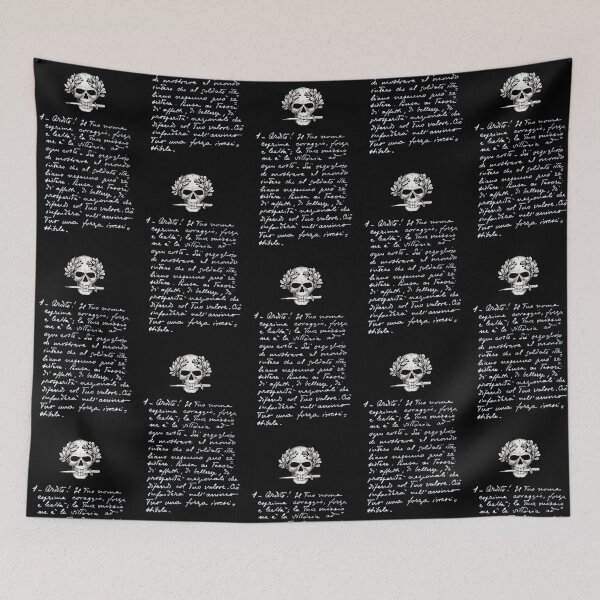 1 - Ardito! Il Tuo nome
esprime coraggio, forza
e lealtà; la Tua missio
ne è la vittoria ad
ogni costo - Sii orgoglioso
di mostrare al mondo
intero che al soldato ita
liano nessuno può re
sistere. Pensa ai Tesori
di affetti, di bellezza, di
prosperità nazionale che
difendi col Tuo valore. Ciò
infonderà nell'animo
Tuo una forza irresi=
stibile.